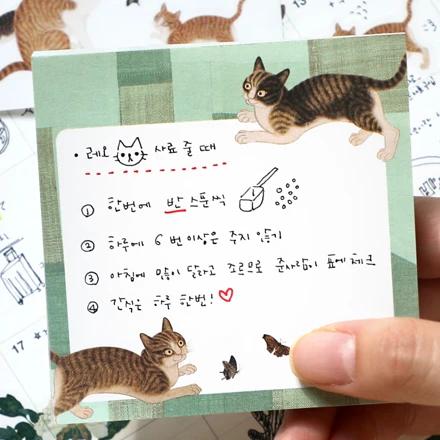 • 레오 사료 줄 때
① 한번에 반 스푼씩
② 하루에 6번 이상은 주지 않기
③ 아침에 많이 달라고 조르므로 준사람이 표에 체크
④ 간식은 하루 한번!♡
17